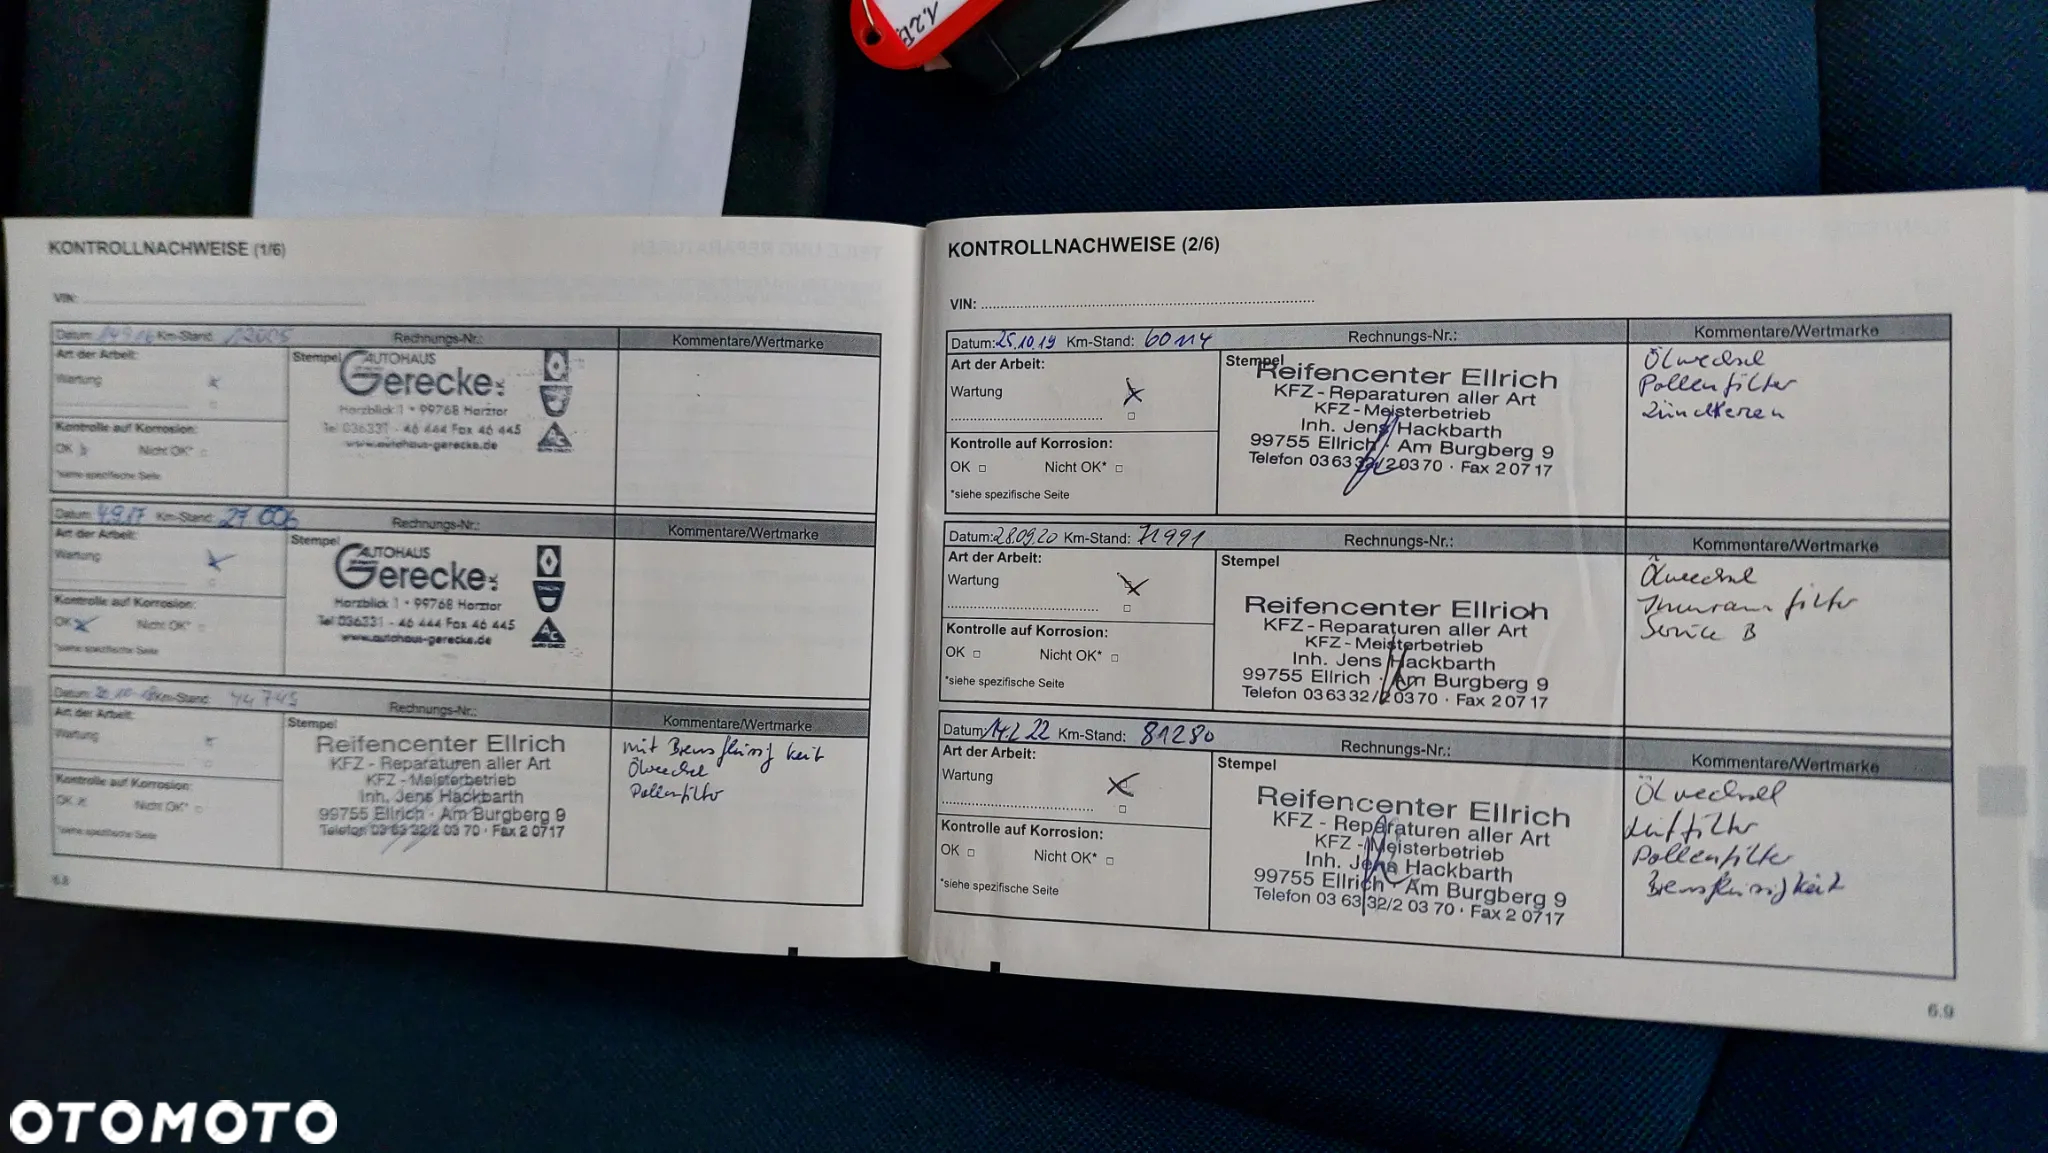 1.2B
KONTROLLNACHWEISE (1/6)
VIN:
Datum: 14.9.16 Km-Stand: 12005 Rechnungs-Nr.: Kommentare/Wertmarke
Art der Arbeit:
Wartung
Kontrolle auf Korrosion:
OK Nicht OK*
*siehe spezifische Seite
Stempel
AUTOHAUS
Gerecke
Harzblick 1 • 99768 Harztor
Tel 036331 - 46 444 Fax 46 445
www.autohaus-gerecke.de
Datum: 4.9.17 Km-Stand: 27 606 Rechnungs-Nr.: Kommentare/Wertmarke
Art der Arbeit:
Wartung
Kontrolle auf Korrosion:
OK Nicht OK*
*siehe spezifische Seite
Stempel
AUTOHAUS
Gerecke
Harzblick 1 • 99768 Harztor
Tel 036331 - 46 444 Fax 46 445
www.autohaus-gerecke.de
DACIA
AC
AUTO CHECK
Datum: Km-Stand: 44745 Rechnungs-Nr.: Kommentare/Wertmarke
Art der Arbeit:
Wartung
Kontrolle auf Korrosion:
OK Nicht OK*
*siehe spezifische Seite
Stempel
Reifencenter Ellrich
KFZ - Reparaturen aller Art
KFZ - Meisterbetrieb
Inh. Jens Hackbarth
99755 Ellrich · Am Burgberg 9
Telefon 03 63 32/2 03 70 · Fax 2 07 17
mit Bremsflüssigkeit
Ölwechsel
Pollenfilter
6.8
KONTROLLNACHWEISE (2/6)
VIN:
Datum: 25.10.19 Km-Stand: 60114 Rechnungs-Nr.: Kommentare/Wertmarke
Art der Arbeit:
Wartung
Kontrolle auf Korrosion:
OK Nicht OK*
*siehe spezifische Seite
Stempel
Reifencenter Ellrich
KFZ - Reparaturen aller Art
KFZ - Meisterbetrieb
Inh. Jens Hackbarth
99755 Ellrich · Am Burgberg 9
Telefon 03 63 32/2 03 70 · Fax 2 07 17
Ölwechsel
Pollenfilter
Zündkerzen
Datum: 28.09.20 Km-Stand: 71991 Rechnungs-Nr.: Kommentare/Wertmarke
Art der Arbeit:
Wartung
Kontrolle auf Korrosion:
OK Nicht OK*
*siehe spezifische Seite
Stempel
Reifencenter Ellrich
KFZ - Reparaturen aller Art
KFZ - Meisterbetrieb
Inh. Jens Hackbarth
99755 Ellrich · Am Burgberg 9
Telefon 03 63 32/2 03 70 · Fax 2 07 17
Ölwechsel
Innenraumfilter
Service B
Datum: 14.1.22 Km-Stand: 81280 Rechnungs-Nr.: Kommentare/Wertmarke
Art der Arbeit:
Wartung
Kontrolle auf Korrosion:
OK Nicht OK*
*siehe spezifische Seite
Stempel
Reifencenter Ellrich
KFZ - Reparaturen aller Art
KFZ - Meisterbetrieb
Inh. Jens Hackbarth
99755 Ellrich · Am Burgberg 9
Telefon 03 63 32/2 03 70 · Fax 2 07 17
Ölwechsel
Luftfilter
Pollenfilter
Bremsflüssigkeit
6.9
OTOMOTO